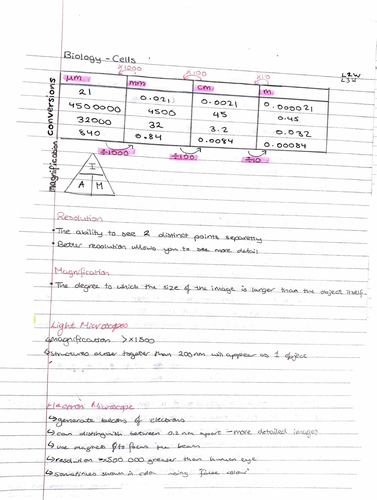 Biology - Cells
x1000 x100 x10
L2W
conversions
μm mm cm m
21 0.021 0.0021 0.000021
4500000 4500 45 0.45
32000 32 3.2 0.032
840 0.84 0.0084 0.00084
÷1000 ÷100 ÷10
Magnification
I
A M
Resolution
• The ability to see 2 distinct points separetly
• Better resolution allows you to see more detail
Magnification
• The degree to which the size of the image is larger than the object itself.
Light Microscopes
↳magnification >x1500
↳structures closer together than 200nm will appear as 1 object
Electron Microscope
↳generate beams of electrons
↳can distinguish between 0.2nm apart - more detailed images
↳use magnets to focus the beams
↳resolution 500 000 greater than human eye
↳sometimes shown in color using 'false colour'